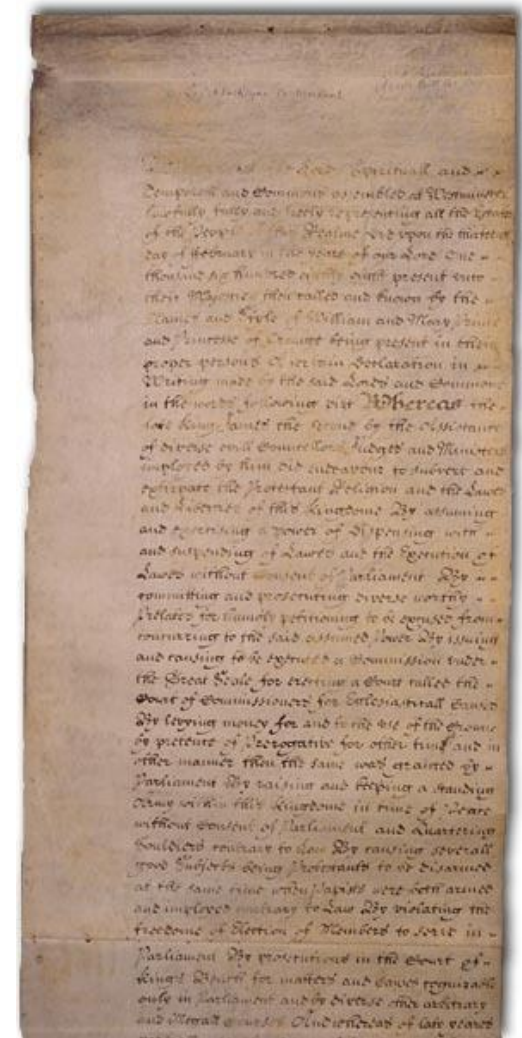 the Lords Spirituall and
Temporall and Commons assembled at Westminster
lawfully fully and freely representing all the Estates
of the People of this Realme did upon the thirteenth
day of February in the yeare of our Lord One
thousand six hundred eighty eight present unto
their Majesties then called and known by the
Names and Style of William and Mary Prince
and Princesse of Orange being present in their
proper persons A certain Declaration in
Writing made by the said Lords and Commons
in the words following viz Whereas the
late King James the second by the Assistance
of diverse evill Councellors Judges and Ministers
imployed by him did endeavour to subvert and
extirpate the Protestant Religion and the Lawes
and Liberties of this Kingdome By assuming
and exercising a power of dispensing with
and suspending of Lawes and the Execution of
Lawes without Consent of Parliament By
committing and prosecuting diverse worthy
Prelates for humbly petitioning to be excused from
concurring to the said assumed Power By issuing
and causing to be executed a Commission under
the Great Seale for erecting a Court called the
Court of Commissioners for Ecclesiasticall Causes
By levying money for and to the use of the Crowne
by pretence of Prerogative for other time and in
other manner then the same was granted by
Parliament By raising and keeping a standing
Army within this Kingdome in time of Peace
without Consent of Parliament and Quartering
Souldiers contrary to Law By causing severall
good Subjects being Protestants to be disarmed
at the same time when Papists were both armed
and imployed contrary to Law By violating the
freedome of Election of Members to serve in
Parliament By prosecutions in the Court of
Kings Bench for matters and Causes cognizable
only in Parliament and by diverse other arbitrary
and Illegall Courses And whereas of late yeares